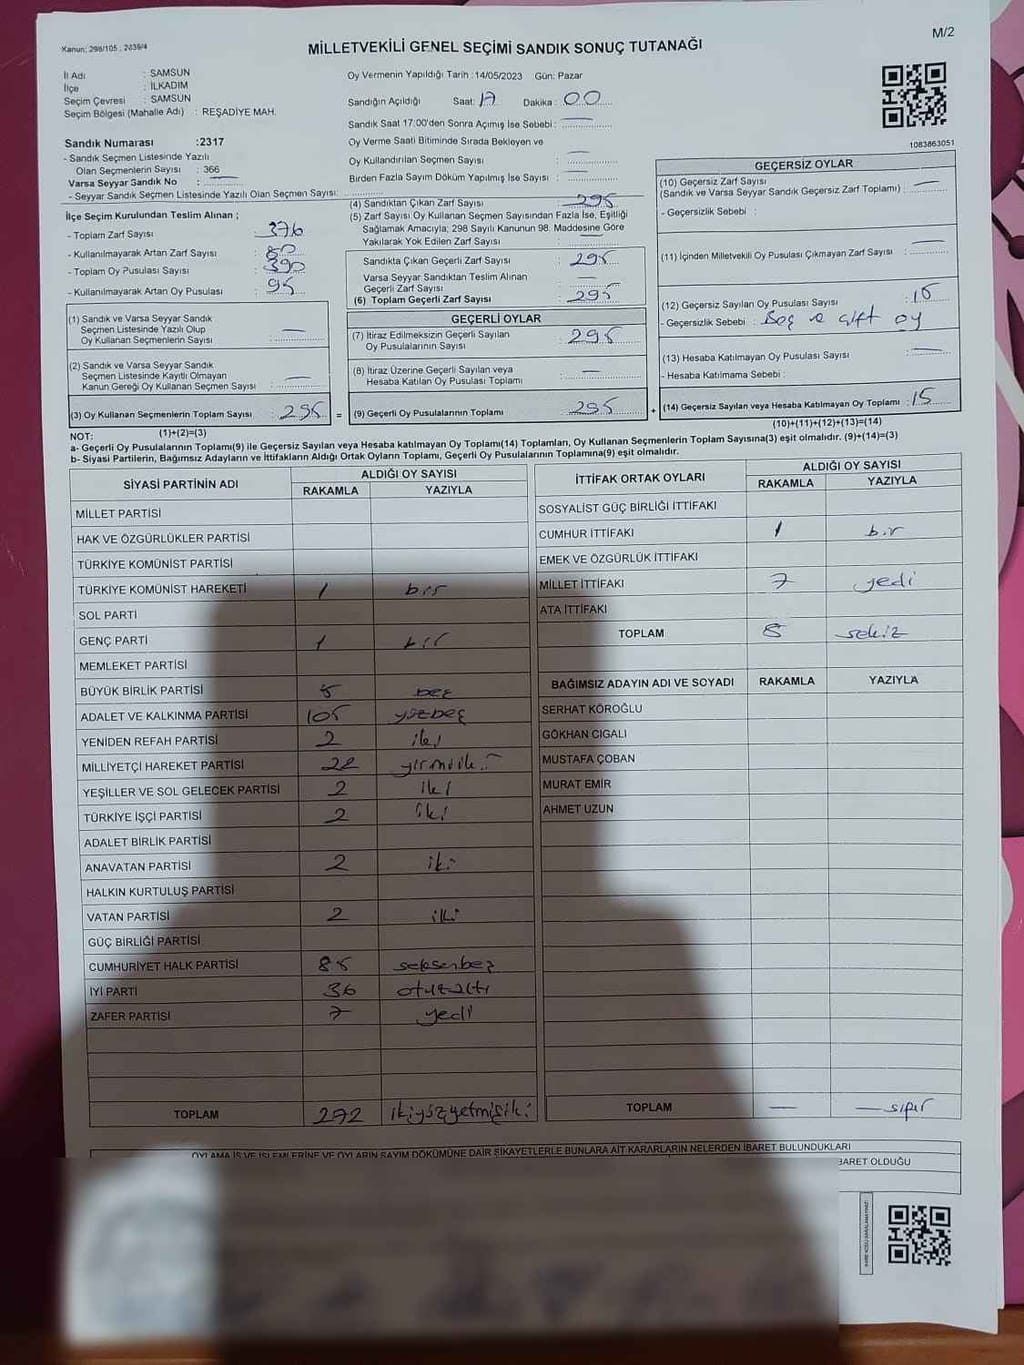 Kanun: 298/105 , 2839/4
M/2
MİLLETVEKİLİ GENEL SEÇİMİ SANDIK SONUÇ TUTANAĞI
İl Adı : SAMSUN
İlçe : İLKADIM
Seçim Çevresi : SAMSUN
Seçim Bölgesi (Mahalle Adı) : REŞADİYE MAH.
Oy Vermenin Yapıldığı Tarih : 14/05/2023 Gün: Pazar
Sandığın Açıldığı Saat: 17 Dakika : 00
Sandık Saat 17:00'den Sonra Açımış İse Sebebi : —
Oy Verme Saati Bitiminde Sırada Bekleyen ve
Oy Kullandırılan Seçmen Sayısı : —
Birden Fazla Sayım Döküm Yapılmış İse Sayısı : —
1083863051
Sandık Numarası :2317
- Sandık Seçmen Listesinde Yazılı
Olan Seçmenlerin Sayısı : 366
Varsa Seyyar Sandık No : —
- Seyyar Sandık Seçmen Listesinde Yazılı Olan Seçmen Sayısı:
İlçe Seçim Kurulundan Teslim Alınan ;
- Toplam Zarf Sayısı : 376
- Kullanılmayarak Artan Zarf Sayısı : 80
- Toplam Oy Pusulası Sayısı : 390
- Kullanılmayarak Artan Oy Pusulası : 95
(1) Sandık ve Varsa Seyyar Sandık
Seçmen Listesinde Yazılı Olup
Oy Kullanan Seçmenlerin Sayısı : —
(2) Sandık ve Varsa Seyyar Sandık
Seçmen Listesinde Kayıtlı Olmayan
Kanun Gereği Oy Kullanan Seçmen Sayısı : —
(3) Oy Kullanan Seçmenlerin Toplam Sayısı : 295 =
(1)+(2)=(3)
(4) Sandıktan Çıkan Zarf Sayısı : 295
(5) Zarf Sayısı Oy Kullanan Seçmen Sayısından Fazla İse, Eşitliği
Sağlamak Amacıyla; 298 Sayılı Kanunun 98. Maddesine Göre
Yakılarak Yok Edilen Zarf Sayısı : —
Sandıkta Çıkan Geçerli Zarf Sayısı : 295
Varsa Seyyar Sandıktan Teslim Alınan
Geçerli Zarf Sayısı : —
(6) Toplam Geçerli Zarf Sayısı : 295
GEÇERLİ OYLAR
(7) İtiraz Edilmeksizin Geçerli Sayılan
Oy Pusulalarının Sayısı : 295
(8) İtiraz Üzerine Geçerli Sayılan veya
Hesaba Katılan Oy Pusulası Toplamı : —
(9) Geçerli Oy Pusulalarının Toplamı : 295 +
GEÇERSİZ OYLAR
(10) Geçersiz Zarf Sayısı
(Sandık ve Varsa Seyyar Sandık Geçersiz Zarf Toplamı) : —
- Geçersizlik Sebebi :
(11) İçinden Milletvekili Oy Pusulası Çıkmayan Zarf Sayısı : —
(12) Geçersiz Sayılan Oy Pusulası Sayısı : 15
- Geçersizlik Sebebi : Boş ve çift oy
(13) Hesaba Katılmayan Oy Pusulası Sayısı : —
- Hesaba Katılmama Sebebi :
(14) Geçersiz Sayılan veya Hesaba Katılmayan Oy Toplamı : 15
(10)+(11)+(12)+(13)=(14)
NOT:
a- Geçerli Oy Pusulalarının Toplamı(9) ile Geçersiz Sayılan veya Hesaba katılmayan Oy Toplamı(14) Toplamları, Oy Kullanan Seçmenlerin Toplam Sayısına(3) eşit olmalıdır. (9)+(14)=(3)
b- Siyasi Partilerin, Bağımsız Adayların ve İttifakların Aldığı Ortak Oyların Toplamı, Geçerli Oy Pusulalarının Toplamına(9) eşit olmalıdır.
SİYASİ PARTİNİN ADI ALDIĞI OY SAYISI
RAKAMLA YAZIYLA
MİLLET PARTİSİ
HAK VE ÖZGÜRLÜKLER PARTİSİ
TÜRKİYE KOMÜNİST PARTİSİ
TÜRKİYE KOMÜNİST HAREKETİ 1 bir
SOL PARTİ
GENÇ PARTİ 1 bir
MEMLEKET PARTİSİ
BÜYÜK BİRLİK PARTİSİ 5 beş
ADALET VE KALKINMA PARTİSİ 105 yüzbeş
YENİDEN REFAH PARTİSİ 2 iki
MİLLİYETÇİ HAREKET PARTİSİ 22 yirmiiki
YEŞİLLER VE SOL GELECEK PARTİSİ 2 iki
TÜRKİYE İŞÇİ PARTİSİ 2 iki
ADALET BİRLİK PARTİSİ
ANAVATAN PARTİSİ 2 iki
HALKIN KURTULUŞ PARTİSİ
VATAN PARTİSİ 2 iki
GÜÇ BİRLİĞİ PARTİSİ
CUMHURİYET HALK PARTİSİ 85 seksenbeş
İYİ PARTİ 36 otuzaltı
ZAFER PARTİSİ 7 yedi
TOPLAM 272 ikiyüzyetmişiki
İTTİFAK ORTAK OYLARI ALDIĞI OY SAYISI
RAKAMLA YAZIYLA
SOSYALİST GÜÇ BİRLİĞİ İTTİFAKI
CUMHUR İTTİFAKI 1 bir
EMEK VE ÖZGÜRLÜK İTTİFAKI
MİLLET İTTİFAKI 7 yedi
ATA İTTİFAKI
TOPLAM 8 sekiz
BAĞIMSIZ ADAYIN ADI VE SOYADI RAKAMLA YAZIYLA
SERHAT KÖROĞLU
GÖKHAN CIGALI
MUSTAFA ÇOBAN
MURAT EMİR
AHMET UZUN
TOPLAM — — sıfır
OYLAMA İŞ VE İŞLEMLERİNE VE OYLARIN SAYIM DÖKÜMÜNE DAİR ŞİKAYETLERLE BUNLARA AİT KARARLARIN NELERDEN İBARET BULUNDUKLARI
BARET OLDUĞU